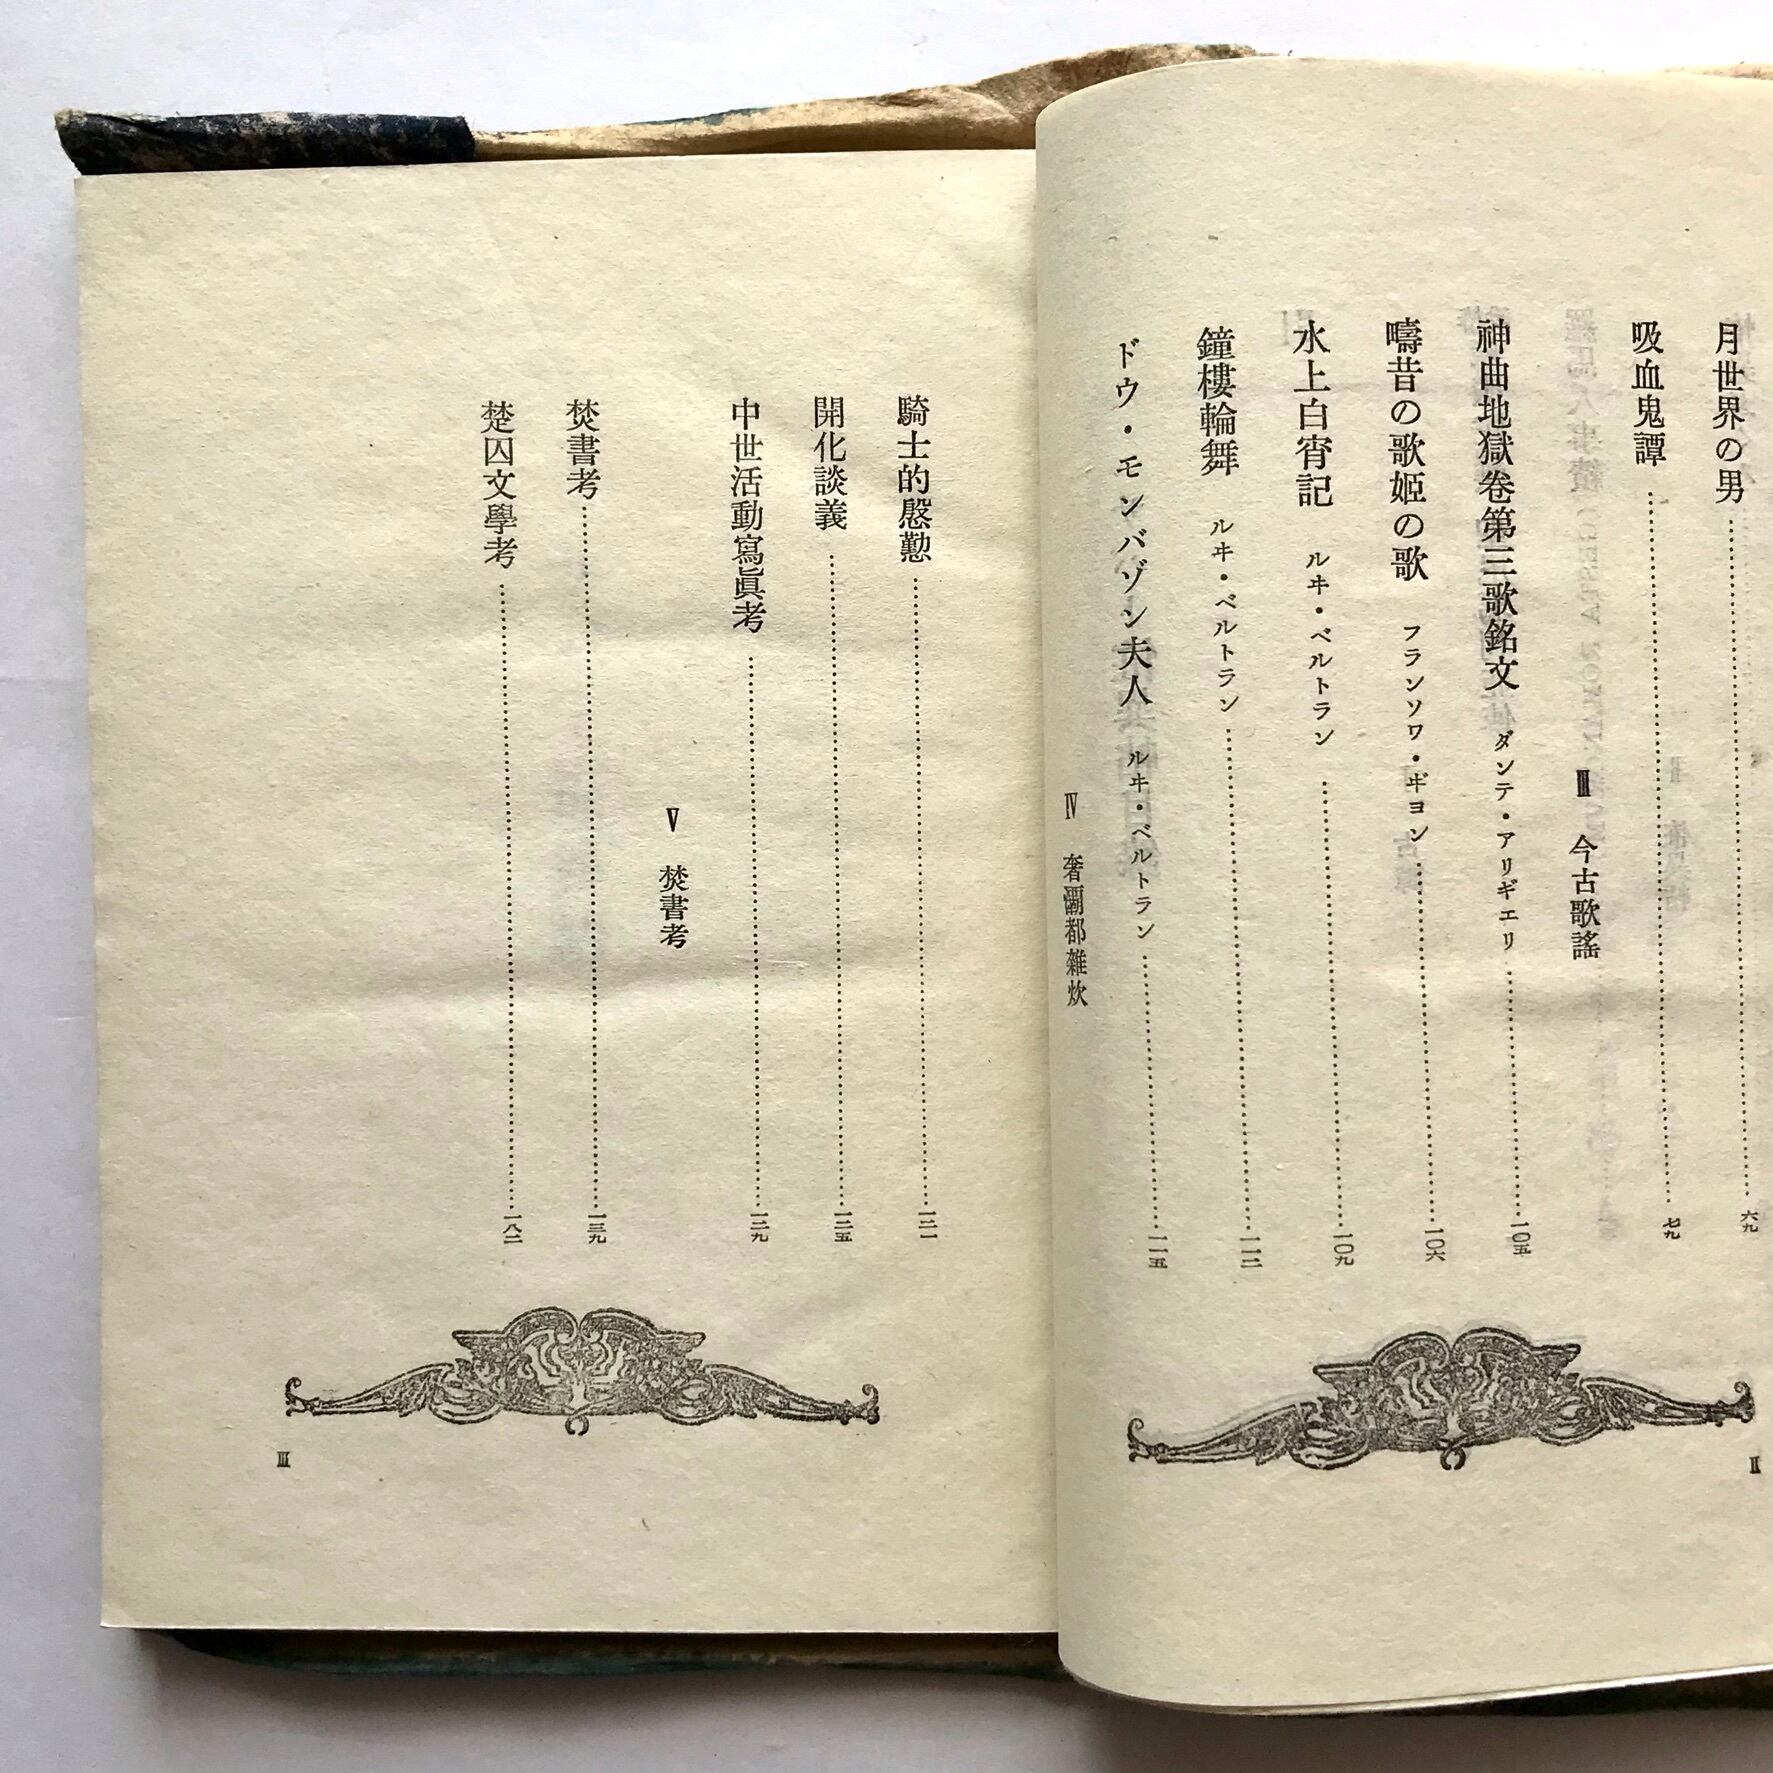 月世界の男……六九
吸血鬼譚……七九
Ⅲ 今古歌謠
神曲地獄卷第三歌銘文 ダンテ・アリギエリ……一〇五
疇昔の歌姫の歌 フランソワ・ギヨン……一〇六
水上白宵記 ルヰ・ベルトラン……一〇九
鐘樓輪舞 ルヰ・ベルトラン……一一二
ドウ・モンバゾン夫人 ルヰ・ベルトラン……一一五
Ⅳ 奢灞都雜炊
Ⅱ
騎士的慇懃……一二一
開化談義……一二五
中世活動寫眞考……一二九
Ⅴ 焚書考
焚書考……一三九
楚囚文學考……一八二
Ⅲ